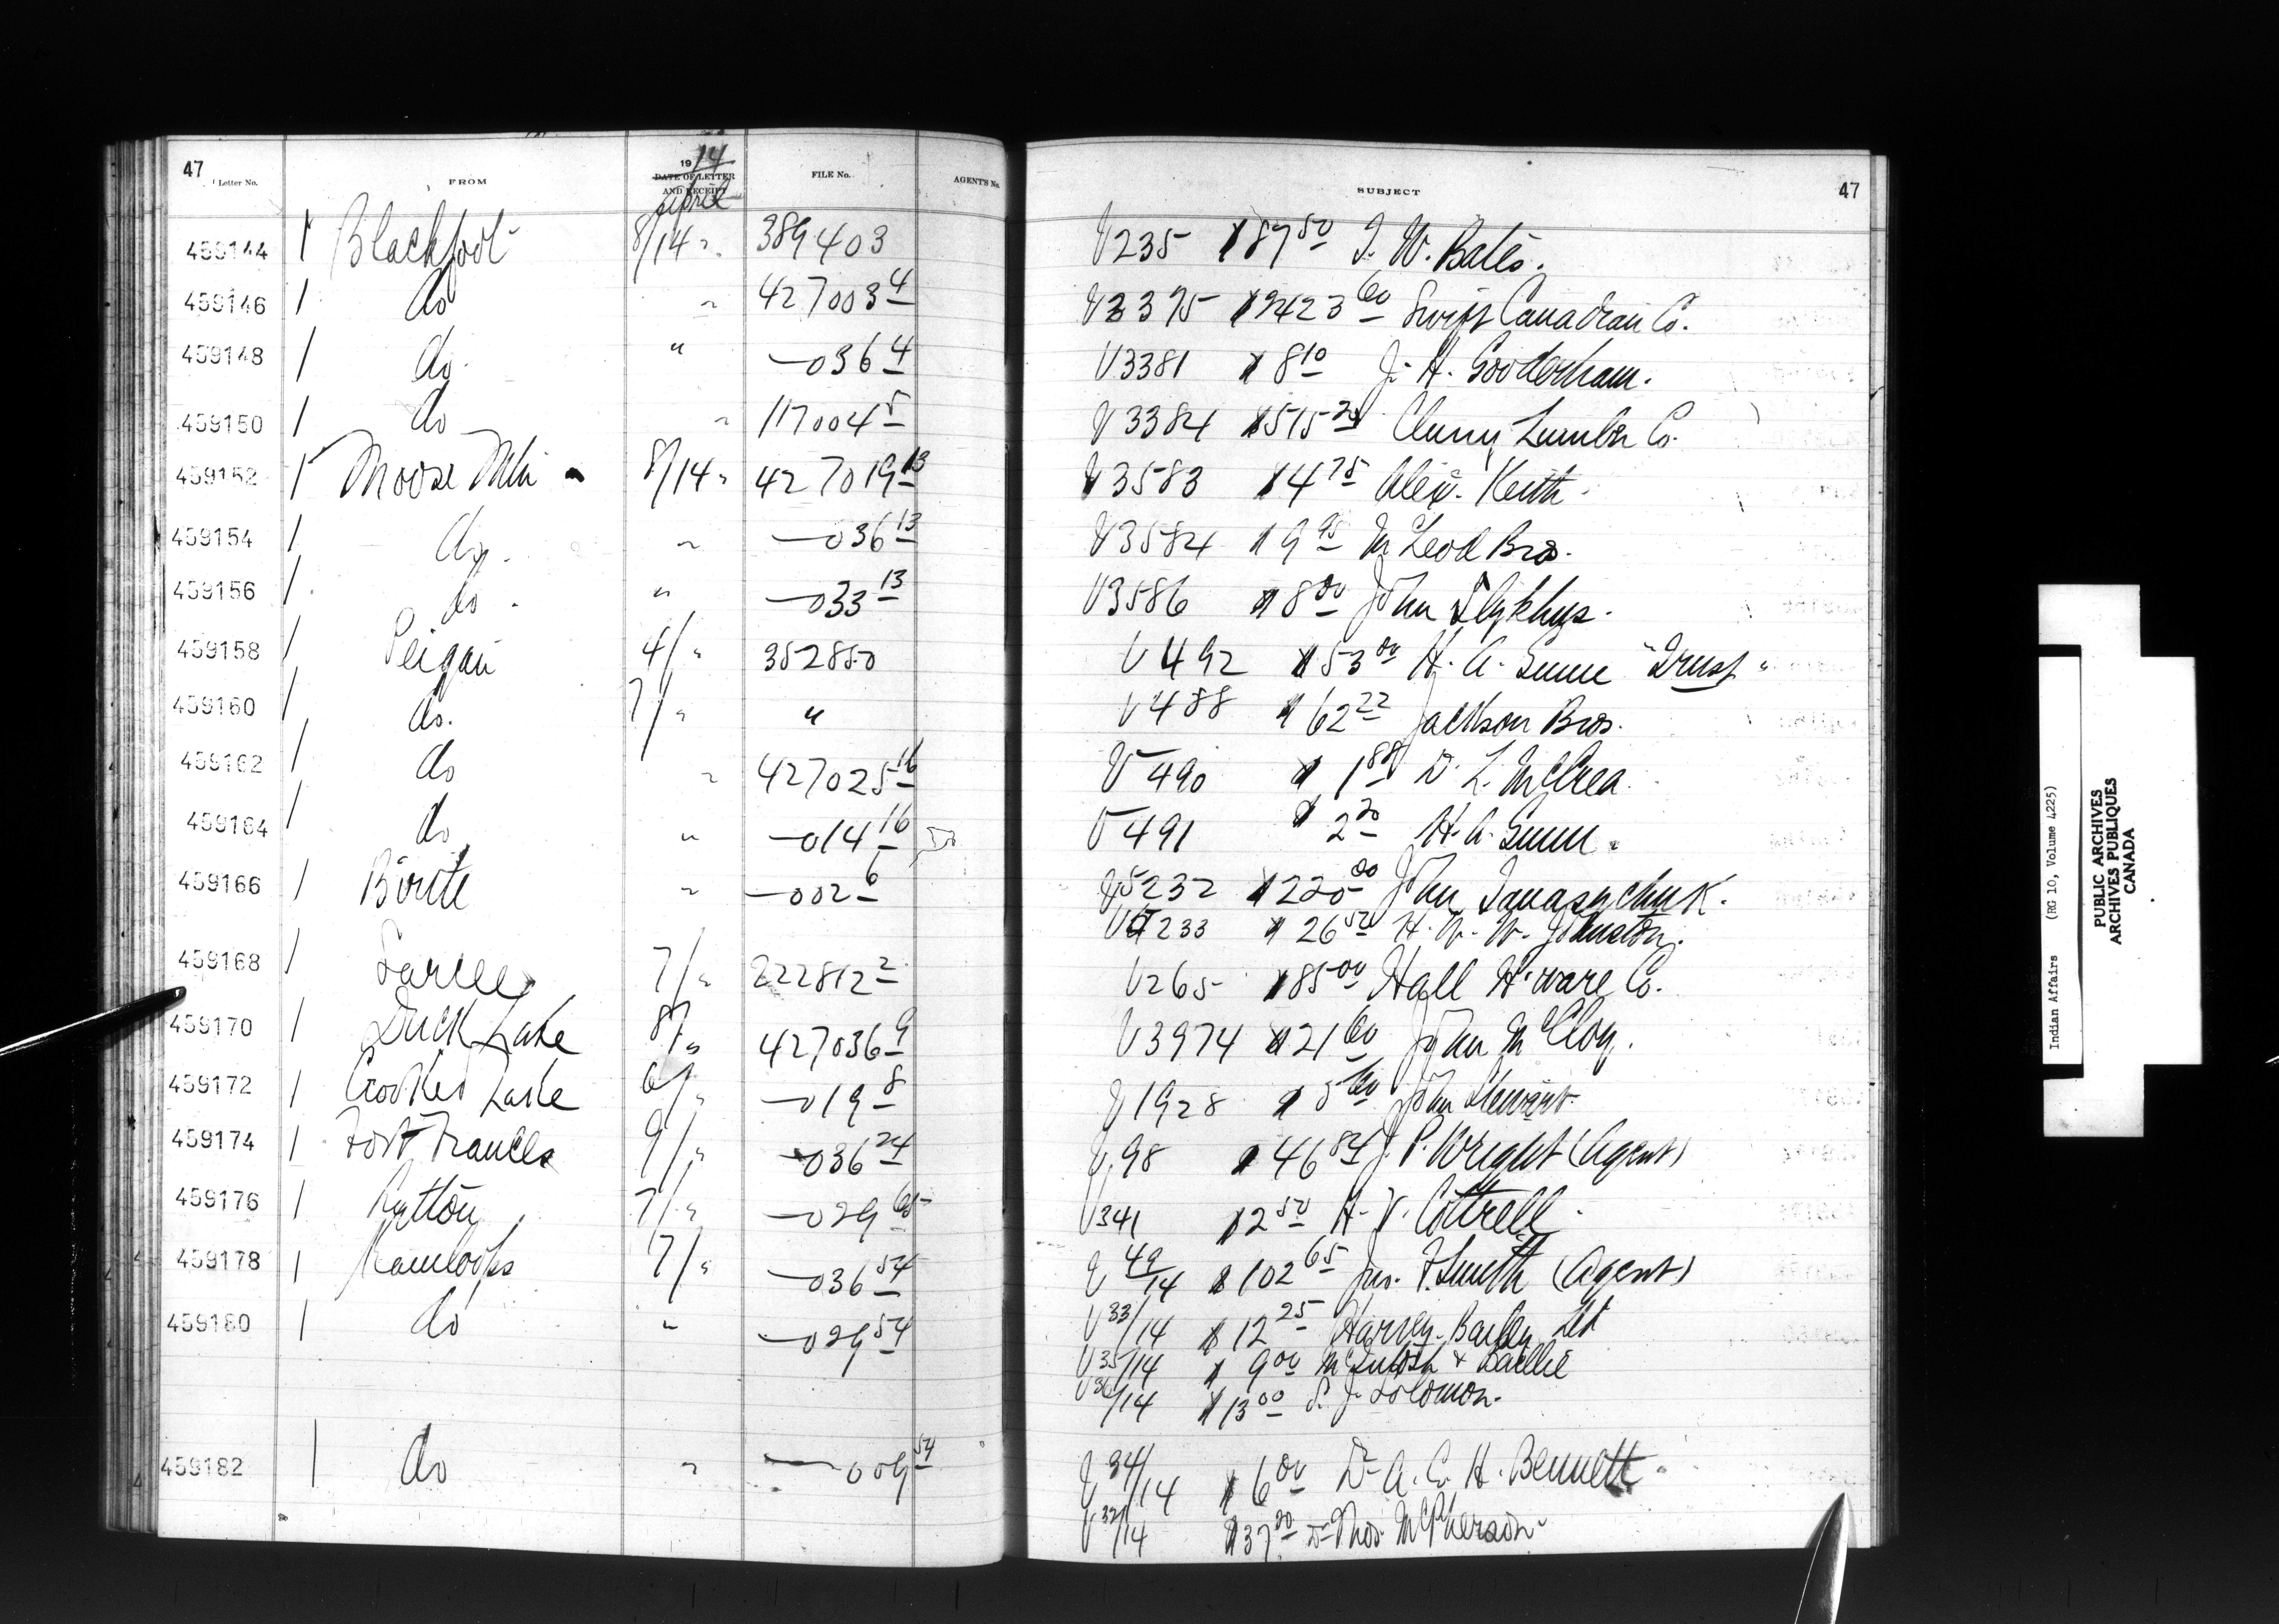 47 Letter No. FROM 1914 DATE OF LETTER AND RECEIPT April FILE No. AGENT'S No. SUBJECT 47
459144 1 Blackfoot 8/14 " 389403 V 235 $87 50 J. W. Bates.
459146 1 do " 427003 4 V 3375 $2423 60 Swift Canadian Co.
459148 1 do. " —036 4 V 3381 $8 10 J. H. Gooderham.
459150 1 do " 117004 5 V 3384 $515 20 Cluny Lumber Co.
459152 1 Moose Mtn 8/14 " 427019 13 V 3583 $4 75 Alex. Keith
459154 1 do. " —036 13 V 3584 $9 95 McLeod Bros.
459156 1 do. " —033 13 V 3586 $8 00 John
459158 1 Peigan 4/ " 352850 V 492 $53 00 H. A. Gunn "Trust"
459160 1 do. 7/ " " V 488 $62 22 Jackson Bros.
459162 1 do " 427025 16 V 490 $1 88 D. L. McCrea.
459164 1 do " —014 16 V 491 $2 20 H. A. Gunn.
459166 1 Birtle " —002 6 V 5232 $220 00 John Tanasychuk.
V 5233 $26 50 H. W. W. Johnston.
459168 1 Sarcee 7/ " 222812 2 V 265 $85 00 Hall H'ware Co.
459170 1 Duck Lake 8/ " 427036 9 V 3974 $21 60 John McCloy.
459172 1 Crooked Lake 6/ " —019 8 V 1928 $5 60 John Stewart.
459174 1 Fort Frances 9/ " —036 24 V 98 $46 84 J. P. Wright (Agent)
459176 1 Lytton 7/ " —029 65 V 341 $2 50 H. V. Cottrell.
459178 1 Kamloops 7/ " —036 54 V 49/14 $102 65 Jno. F. Smith (Agent)
459180 1 do " —029 54 V 33/14 $12 25 Harvey. Bailey Ltd
V 35/14 $9 00 McIntosh & Baillie
V 36/14 $13 00 S. J. Solomon.
459182 1 do " —009 54 V 34/14 $6 00 Dr A. C. H. Bennett.
V 32/14 $37 20 Dr Thos. McPherson
Indian Affairs (RG 10, Volume 4225)
PUBLIC ARCHIVES
ARCHIVES PUBLIQUES
CANADA